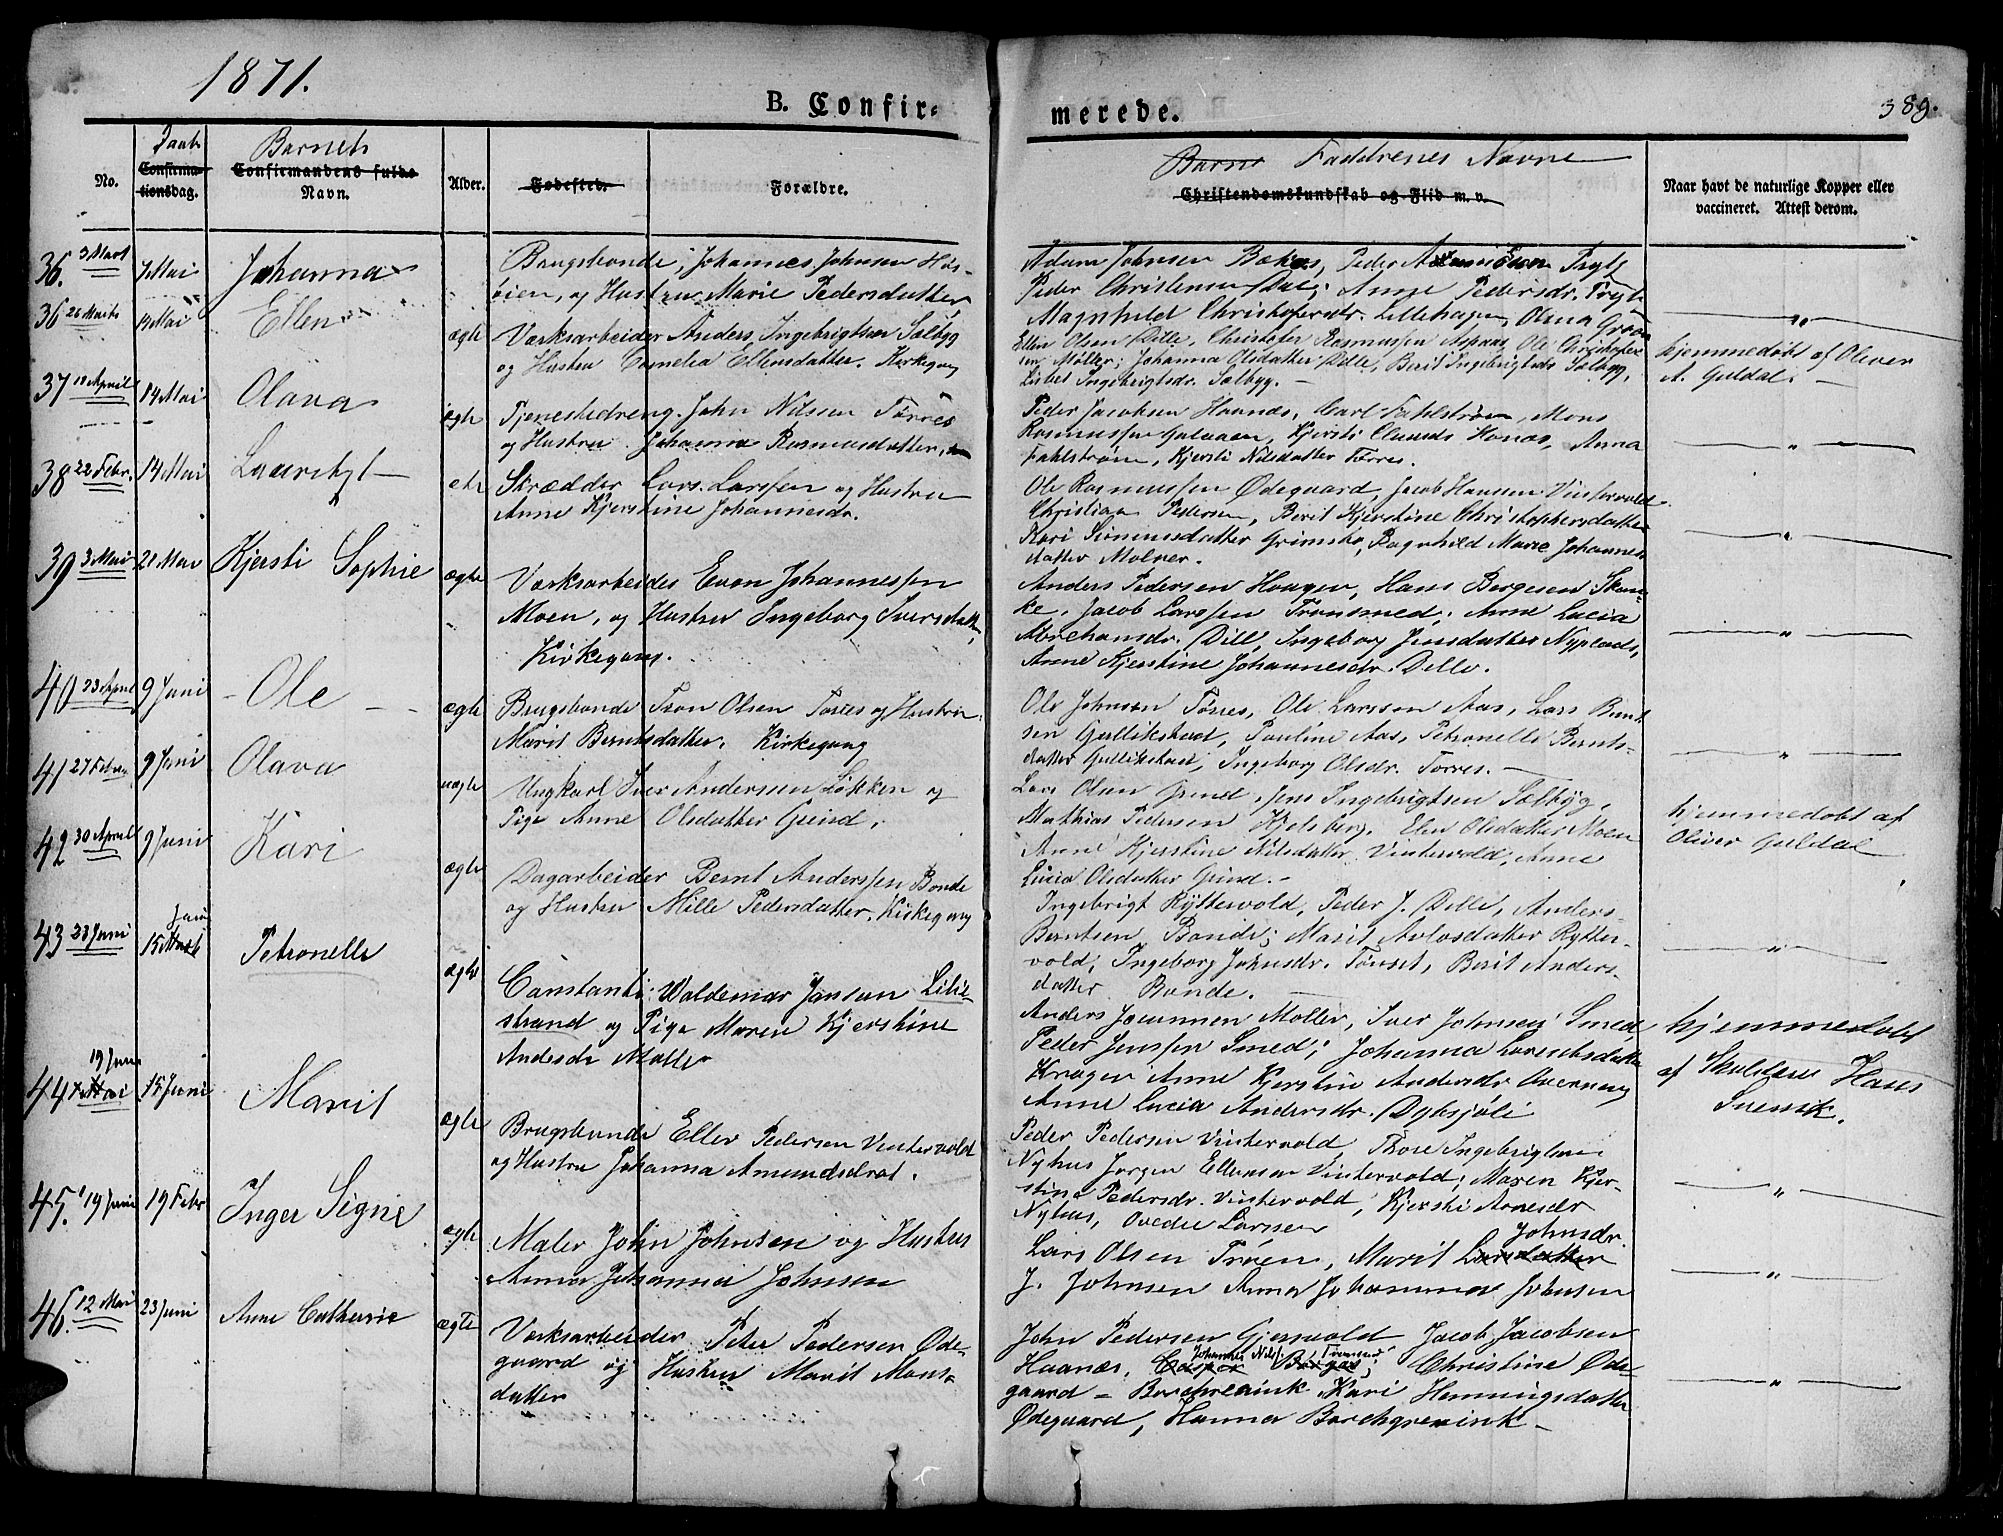 1871.
B. Confir-
merede.
389.
No.
Daab
Confirma-
tionsdag.
Barnets
Confirmandens fulde
Navn.
Alder.
Fødested.
Forældre.
Barns Faddrenes Navne
Christendomskundskab og Flid m. v.
Naar havt de naturlige Kopper eller
vaccineret. Attest derom.
36. 3 Mart 7 Mai Johanna
Brugsbonde, Johannes Johnsen Høs-
øien, og Hustru Marie Pedersdatter
Adam Johnsen Peder Trytz
Peder Christensen Dal, Anne Pedersdr. Trytz
Magnhild Christophersdr. Lillehagen, Olina
36 26 Marts 14 Mai Ellen ægte
Værksarbeider Anders Ingebrigtsen Sælbyg
og Hustru Cornelia Ellensdatter. Kirkegang
Ellen Olsen Dille, Christofer Rasmussen Aspaas, Ole Christofer-
sen Møller; Johanna Olsdatter Dille, Berit Ingebrigtsdr Sælbyg,
Lisbet Ingebrigtsdr. Sælbyg. —
hjemmedøbt af Oliver
A. Guldal. —
37 10 April 14 Mai Olava ægte
Tjenestedreng John Nilssen Tørres
og Hustru Johanna Rasmusdatter,
Peder Jacobsen Haanæs, Carl Fahlstrøm, Mons
Rasmussen Galaaen, Kjersti Hanæs, Anna
Fahlstrøm, Kjersti Nilsdatter Tørres.
38 22 Febr. 14 Mai
Skrædder Lars Larssen og Hustru
Anne Kjerstine Johannesdr.
Ole Rasmussen Ødegaard, Jacob Hansen Vintervold
Christian Pedersen, Berit Kjerstine Christophersdatter
Kari Simunsdatter Grimsbo, Ragnhild Marie Johannes-
datter Molner.
39 3 Mai 21 Mai Kjersti Sophie ægte
Værksarbeider Even Johannessen
Moen, og Hustru Ingeborg Iversdatter,
Kirkegang.
Anders Pedersen Haagen, Hans Børgesen Skan-
ke, Jacob Larssen Trønsmed; Anne Lucia
Abrahamsdr. Dille, Ingeborg Jensdatter Nyplads,
Anne Kjerstine Johannesdr. Dille.
40 23 April 9 Juni – Ole – – ægte
Brugsbonde Tron Olsen Tørres og Hustru
Marit Berntsdatter. Kirkegang
Ole Johnsen Tørres, Ole Larsson Aas, Lars Bernt-
sen Gullikstad, Pauline Aas, Petronelle Bernts-
datter Gullikstad, Ingeborg Olsdr. Tørres. —
41 27 Febru 9 Juni Olava uægte
Ungkarl Iver Andersen Løkken og
Pige Anne Olsdatter Grind.
Lars Olsen Grind, Jens Ingebrigtsen Sælbyg,
Mathias Pedersen Hjelsberg, Elen Olsdatter Moen
Anne Kjerstine Nilsdatter Vintervold, Anne
Lucia Olsdatter Grind. —
hjemmedøbt af
Oliver Guldal
42 30 April 9 Juni Kari ægte
Dagarbeider Bernt Anderssen Bonde
og Hustru Mille Pedersdatter. Kirkegang
Ingebrigt Ryttervold, Peder J. Dille, Anders
Berntsen Bonde; Marit Arlosdatter Rytter-
vold; Ingeborg Johnsdr. Tønset, Berit Anders-
datter Bonde.
43 23 Juni 15 Juni Petronelle ægte
Constants: Waldemar Jansen Lilie-
strand og Pige Maren Kjerstine
Andersdr Møller
Anders Møller, Iver Johnsen Smed,
Peder Jenssen Smed; Johanna Lorentsdatter
Krogen Anne Kjerstin Andersdr
Anne Lucia Andersdr. Dybsjøli
hjemmedøbt
af Skolelærer Hans
44 19 Juni 15 Juni Marit ægte
Brugsbonde Ellev Pedersen Vintervold
og Hustru Johanna Amundsdatt.
Peder Pedersen Vintervold, Thore Ingebrigtsen
Nyhus Jørgen Ellensen Vintervold; Maren Kjer-
stine Pedersdr. Vintervold, Kjersti Arnesdr
Nyhus, Ovedie Larssen
45. 19 Juni 19 Febr Inger Signe ægte
Maler John Johnsen og Hustru
Anna Johanna Johnsen
Johnsdr.
Lars Olsen Trøen, Marit Larsdatter
J. Johnsen Anna Johanna Johnsen
46. 12 Mai 23 Juni Anne Catherine ægte
Værksarbeider Peter Pedersen Øde-
gaard og Hustru Marit Mons-
datter
John Pedersen Gjersvold Jacob Jacobsen
Johannes Nils. Trønsmed
Haanæs, Casper Borgos; Christine Øde-
gaard – Borchrevink, Kari Henningsdatter
Ødegaard, Hanna Borchgrevink —